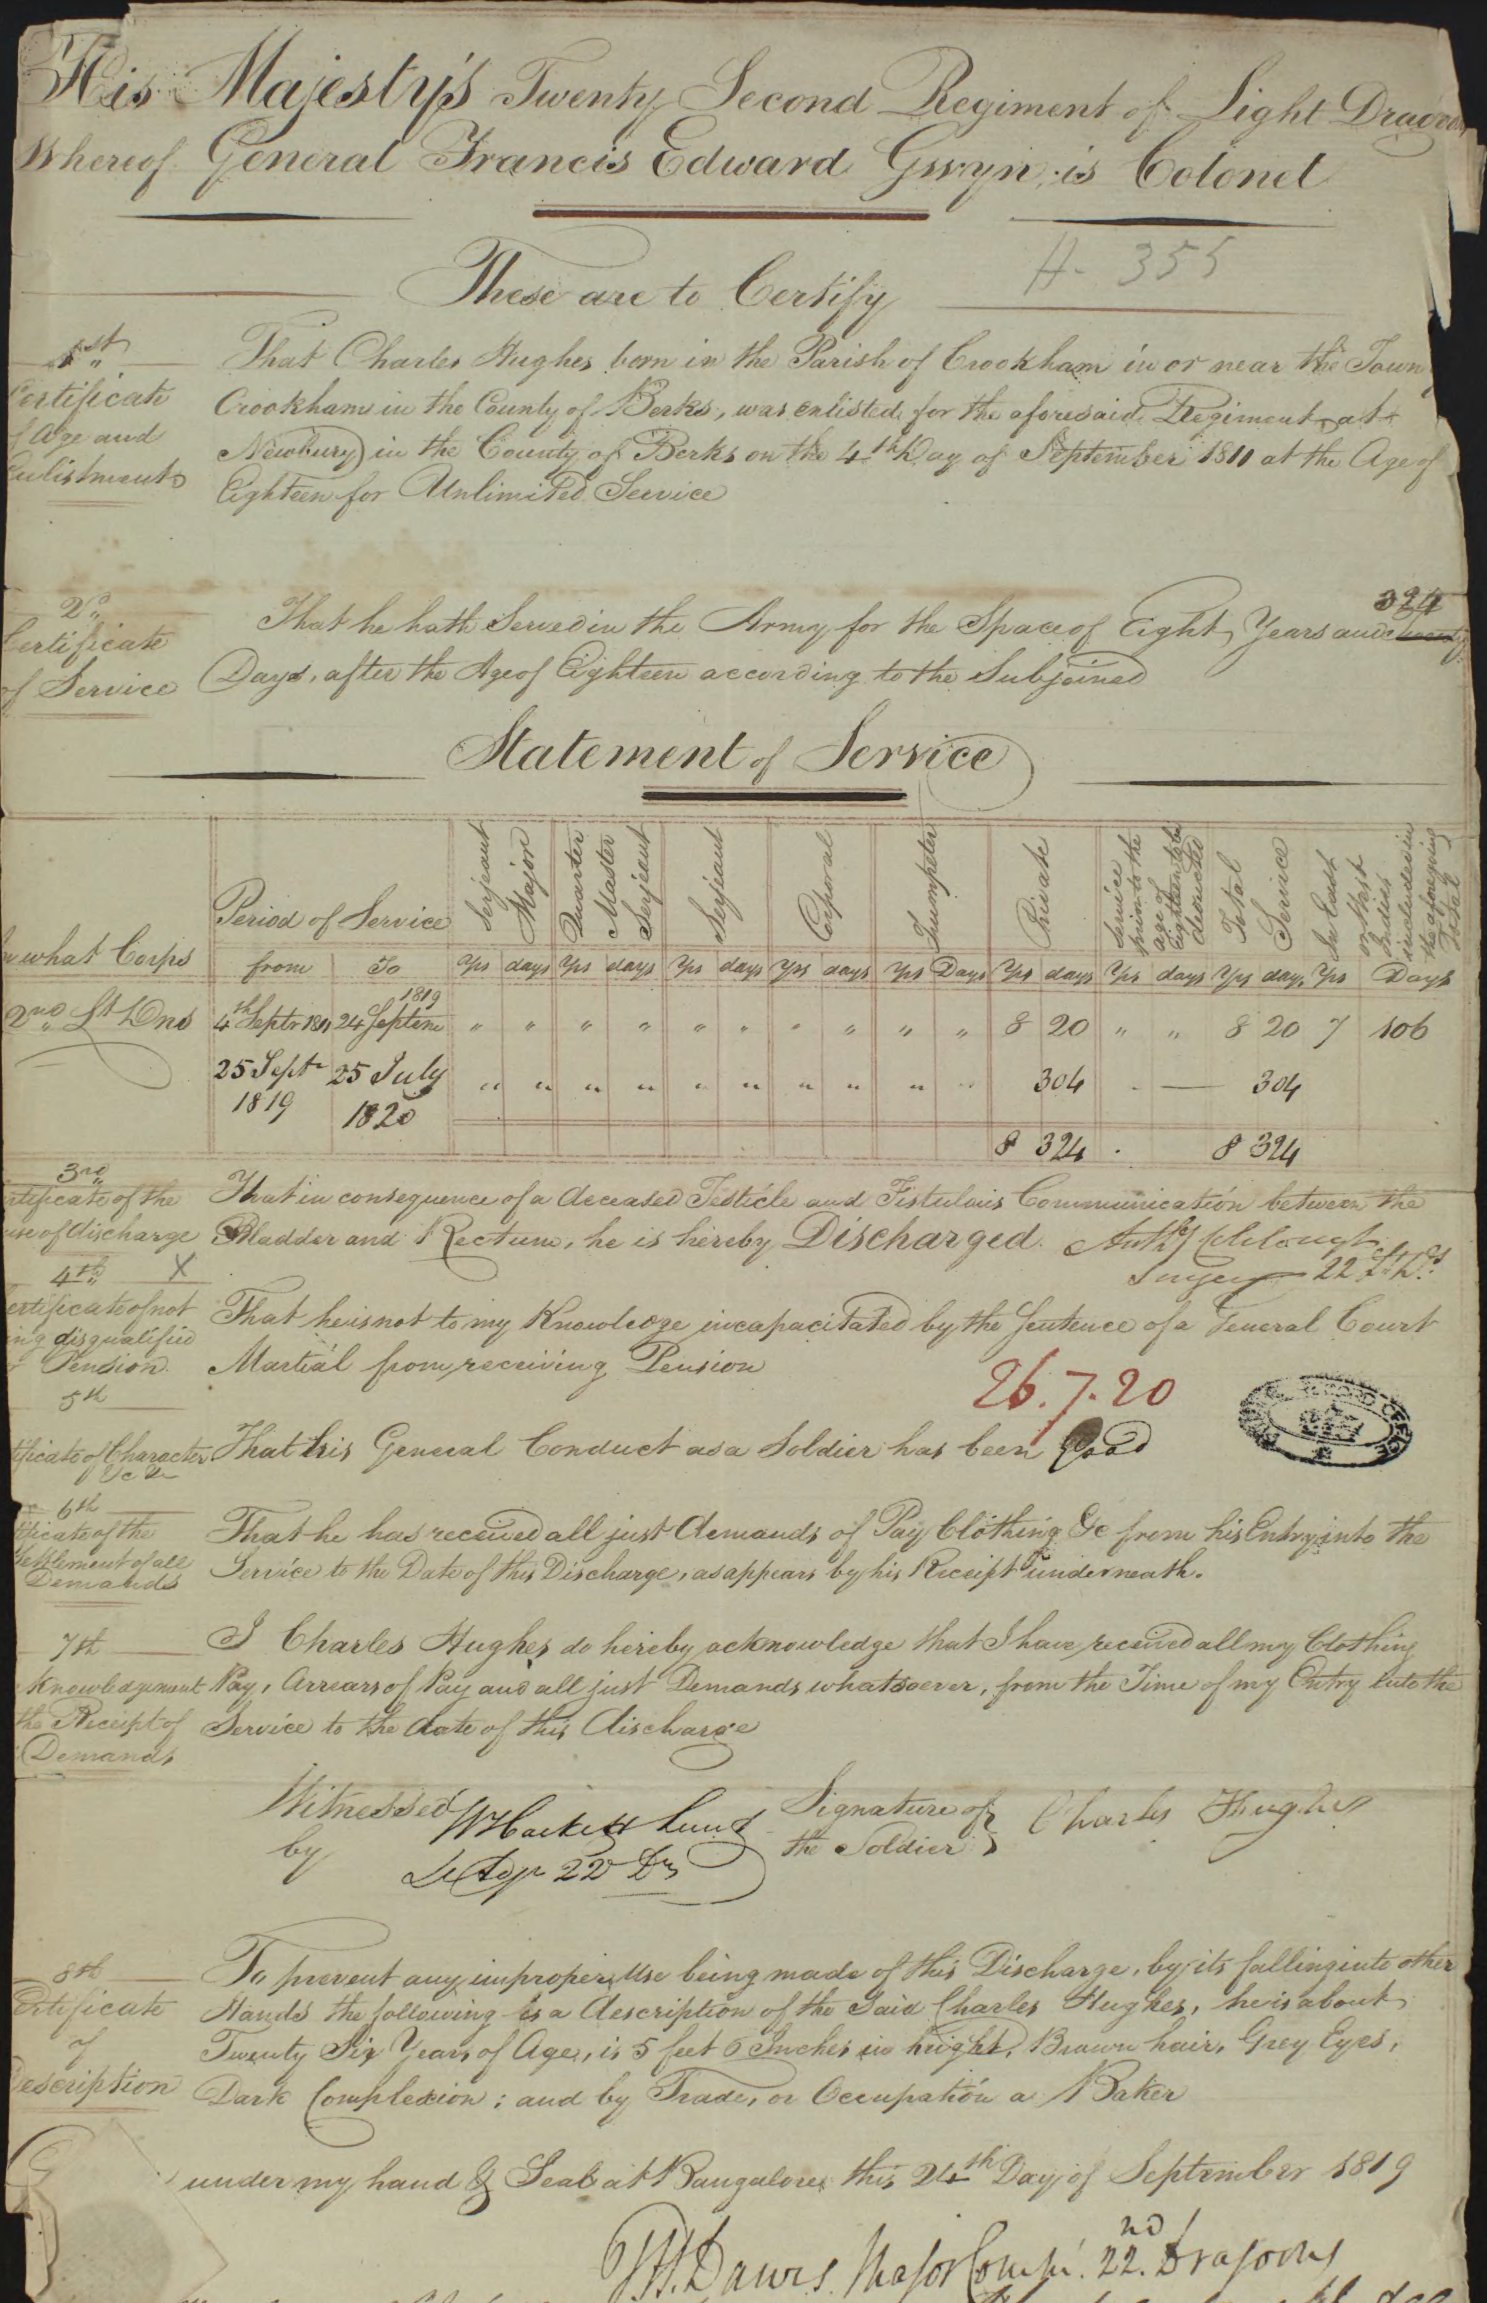 His Majesty's Twenty Second Regiment of Light
Whereof General Francis Edward Gwyn, is Colonel
H- 355
These are to Certify
1st
Certificate
of Age and
Enlistment
That Charles Hughes born in the Parish of Crookham in or near the Town
Crookham in the County of Berks, was enlisted for the aforesaid Regiment at
Newbury in the County of Berks on the 4th Day of September 1811 at the Age of
Eighteen for Unlimited Service
2d
Certificate
of Service
324
That he hath Served in the Army for the Space of Eight Years and
Days, after the Age of Eighteen according to the Subjoined
Statement of Service
In what Corps
Period of Service
from
To
Serjeant Major
Quarter Master Serjeant
Serjeant
Corporal
Trumpeter
Private
Service prior to the age of Eighteen to be deducted
Total Service
In East or West Indies included in the aforegoing Total
Yrs days Yrs days Yrs days Yrs days Yrs Days Yrs days Yrs days Yrs days Yrs Days
2nd Lt Dns 4th Septr 1811 24 Septem 1819 " " " " " " " " " " 8 20 " " 8 20 7 106
25 Septr 1819 25 July 1820 " " " " " " " " " " 304 - — 304
8 324 . 8 324
3rd
tificate of the
use of discharge
That in consequence of a deceased Testicle and Fistulous Communication between the
Bladder and Rectum, he is hereby Discharged. Anthy
22 Lt Ds
4th X
ertificate of not
ing disqualified
Pension
That he is not to my Knowledge incapacitated by the Sentence of a General Court
Martial from receiving Pension
26.7.20
5th
tificate of Character
&c &c
That his General Conduct as a Soldier has been Good
RECORD OFFICE
6th
tificate of the
Settlement of all
Demands
That he has received all just demands of Pay Clothing &c from his Entry into the
Service to the Date of this Discharge, as appears by his Receipt underneath.
7th
knowledgement
the Receipt of
Demands
I Charles Hughes do hereby acknowledge that I have received all my Clothing
Pay, Arrears of Pay and all just Demands whatsoever, from the Time of my Entry into the
Service to the date of this discharge
Witnessed
by
W Hackett
22d Ds
Signature of
the Soldier
Charles Hughes
8th
Certificate
of
Description
To prevent any improper Use being made of this Discharge, by its falling into other
Hands the following is a description of the Said Charles Hughes, he is about
Twenty Six Years of Age, is 5 feet 6 Inches in height, Brown hair, Grey Eyes,
Dark Complexion; and by Trade, or Occupation a Baker
under my hand & Seal at Bangalore this 24th Day of September 1819
Dawes Major Comg. 22nd Dragoons